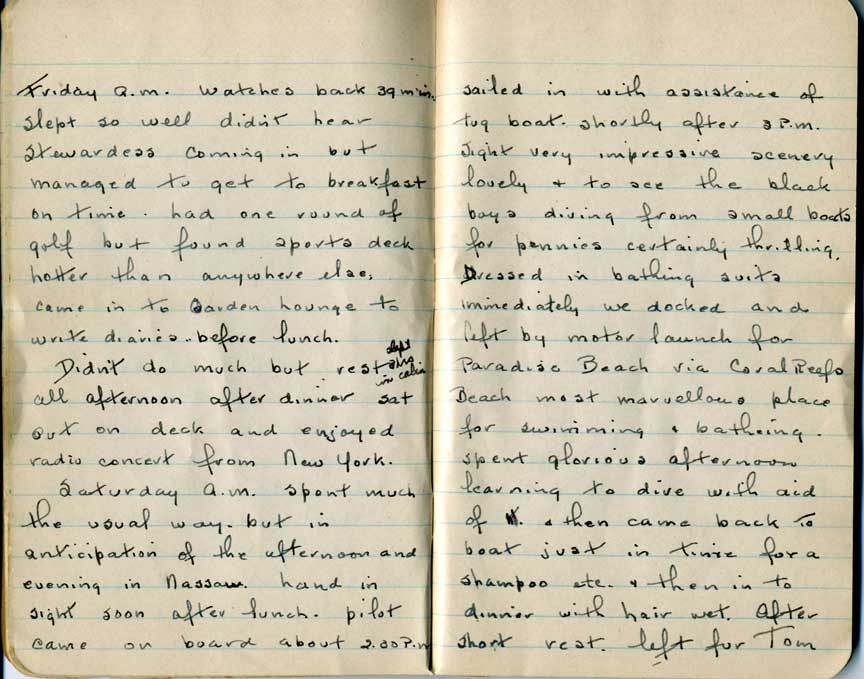 Friday a.m. watches back 39 min.
slept so well didn't hear
stewardess coming in but
managed to get to breakfast
on time. had one round of
golf but found sports deck
hotter than anywhere else,
came in to Garden Lounge to
write diaries.. before lunch.
Didn't do much but rest slept
in cabin
all afternoon after dinner sat
out on deck and enjoyed
radio concert from New York.
Saturday a.m. spent much
the usual way. but in
anticipation of the afternoon and
evening in Nassau. Land in
sight soon after lunch. pilot
came on board about 2.30 P.m
sailed in with assistance of
tug boat. shortly after 3 P.m.
sight very impressive scenery
lovely + to see the black
boys diving from small boats
for pennies certainly thrilling.
Dressed in bathing suits
immediately we docked and
left by motor launch for
Paradise Beach via Coral Reefs
Beach most marvellous place
for swimming + batheing.
spent glorious afternoon
learning to dive with aid
of M. + then came back to
boat just in time for a
shampoo etc. + then in to
dinner with hair wet. After
short rest. left for Tom